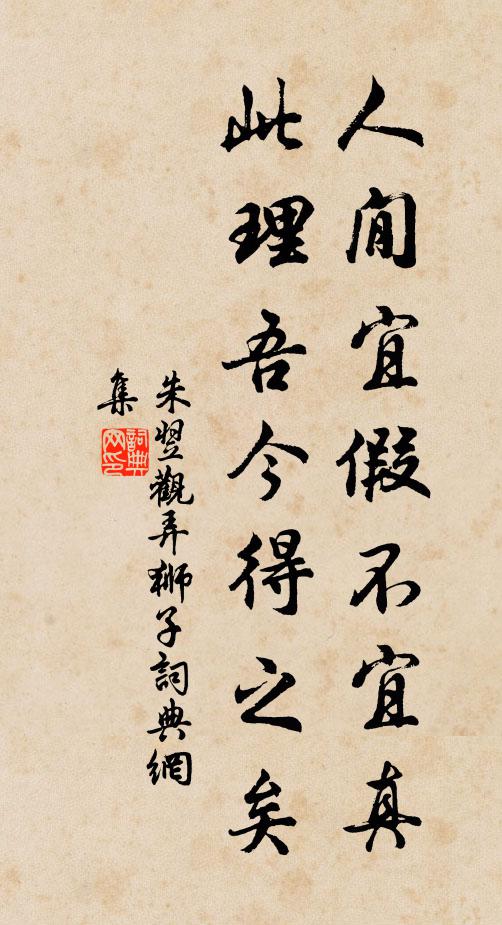 人閒宜假不宜真
此理吾今得之矣
朱翌觀弄獅子詞典網
集
詞典網印